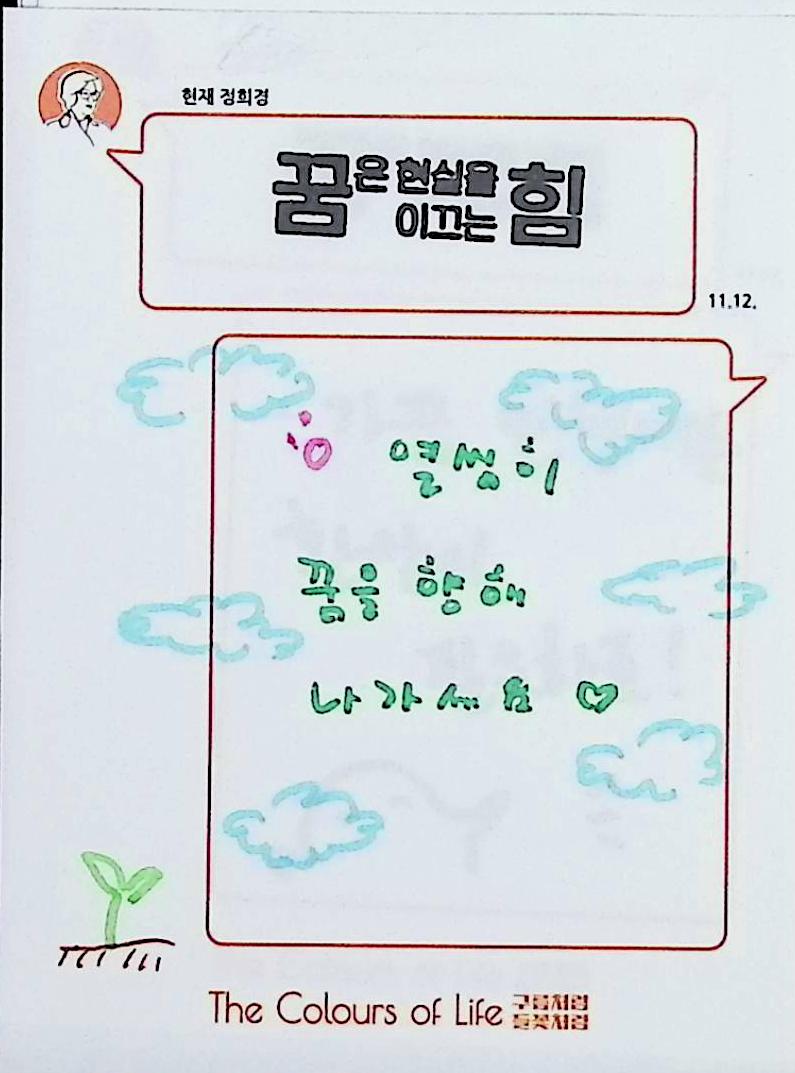 현재 정희경
꿈은 현실을
이끄는 힘
11.12.
열씸히
꿈을 향해
나가세요 ♡
The Colours of Life 구름처럼
들꽃처럼